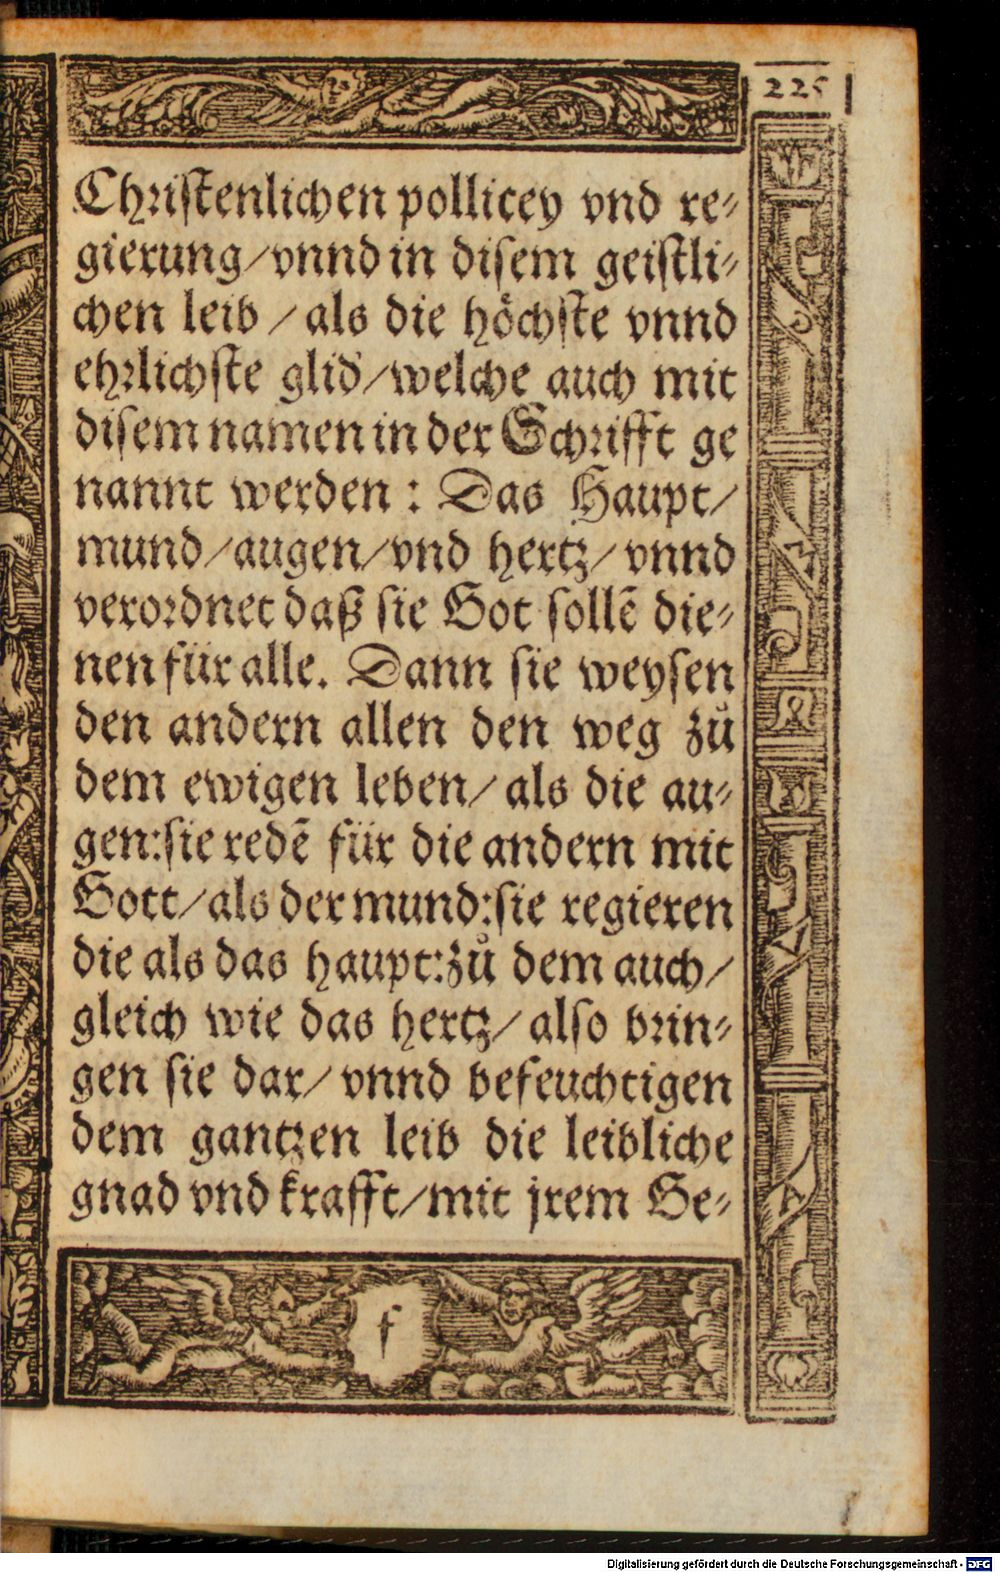 225
Christenlichen pollicey vnd re-
gierung/vnnd in disem geistli-
chen leib / als die höchste vnnd
ehrlichste glid/welche auch mit
disem namen in der Schrifft ge
nannt werden : Das Haupt/
mund/augen/vnd hertz/vnnd
verordnet daß sie Got sollē die-
nen für alle. Dann sie weysen
den andern allen den weg zů
dem ewigen leben/ als die au-
gen:sie redē für die andern mit
Gott/als der mund:sie regieren
die als das haupt:zů dem auch/
gleich wie das hertz/ also brin-
gen sie dar/ vnnd befeuchtigen
dem gantzen leib die leibliche
gnad vnd krafft/mit jrem Ge-
f
Digitalisierung gefördert durch die Deutsche Forschungsgemeinschaft - DFG